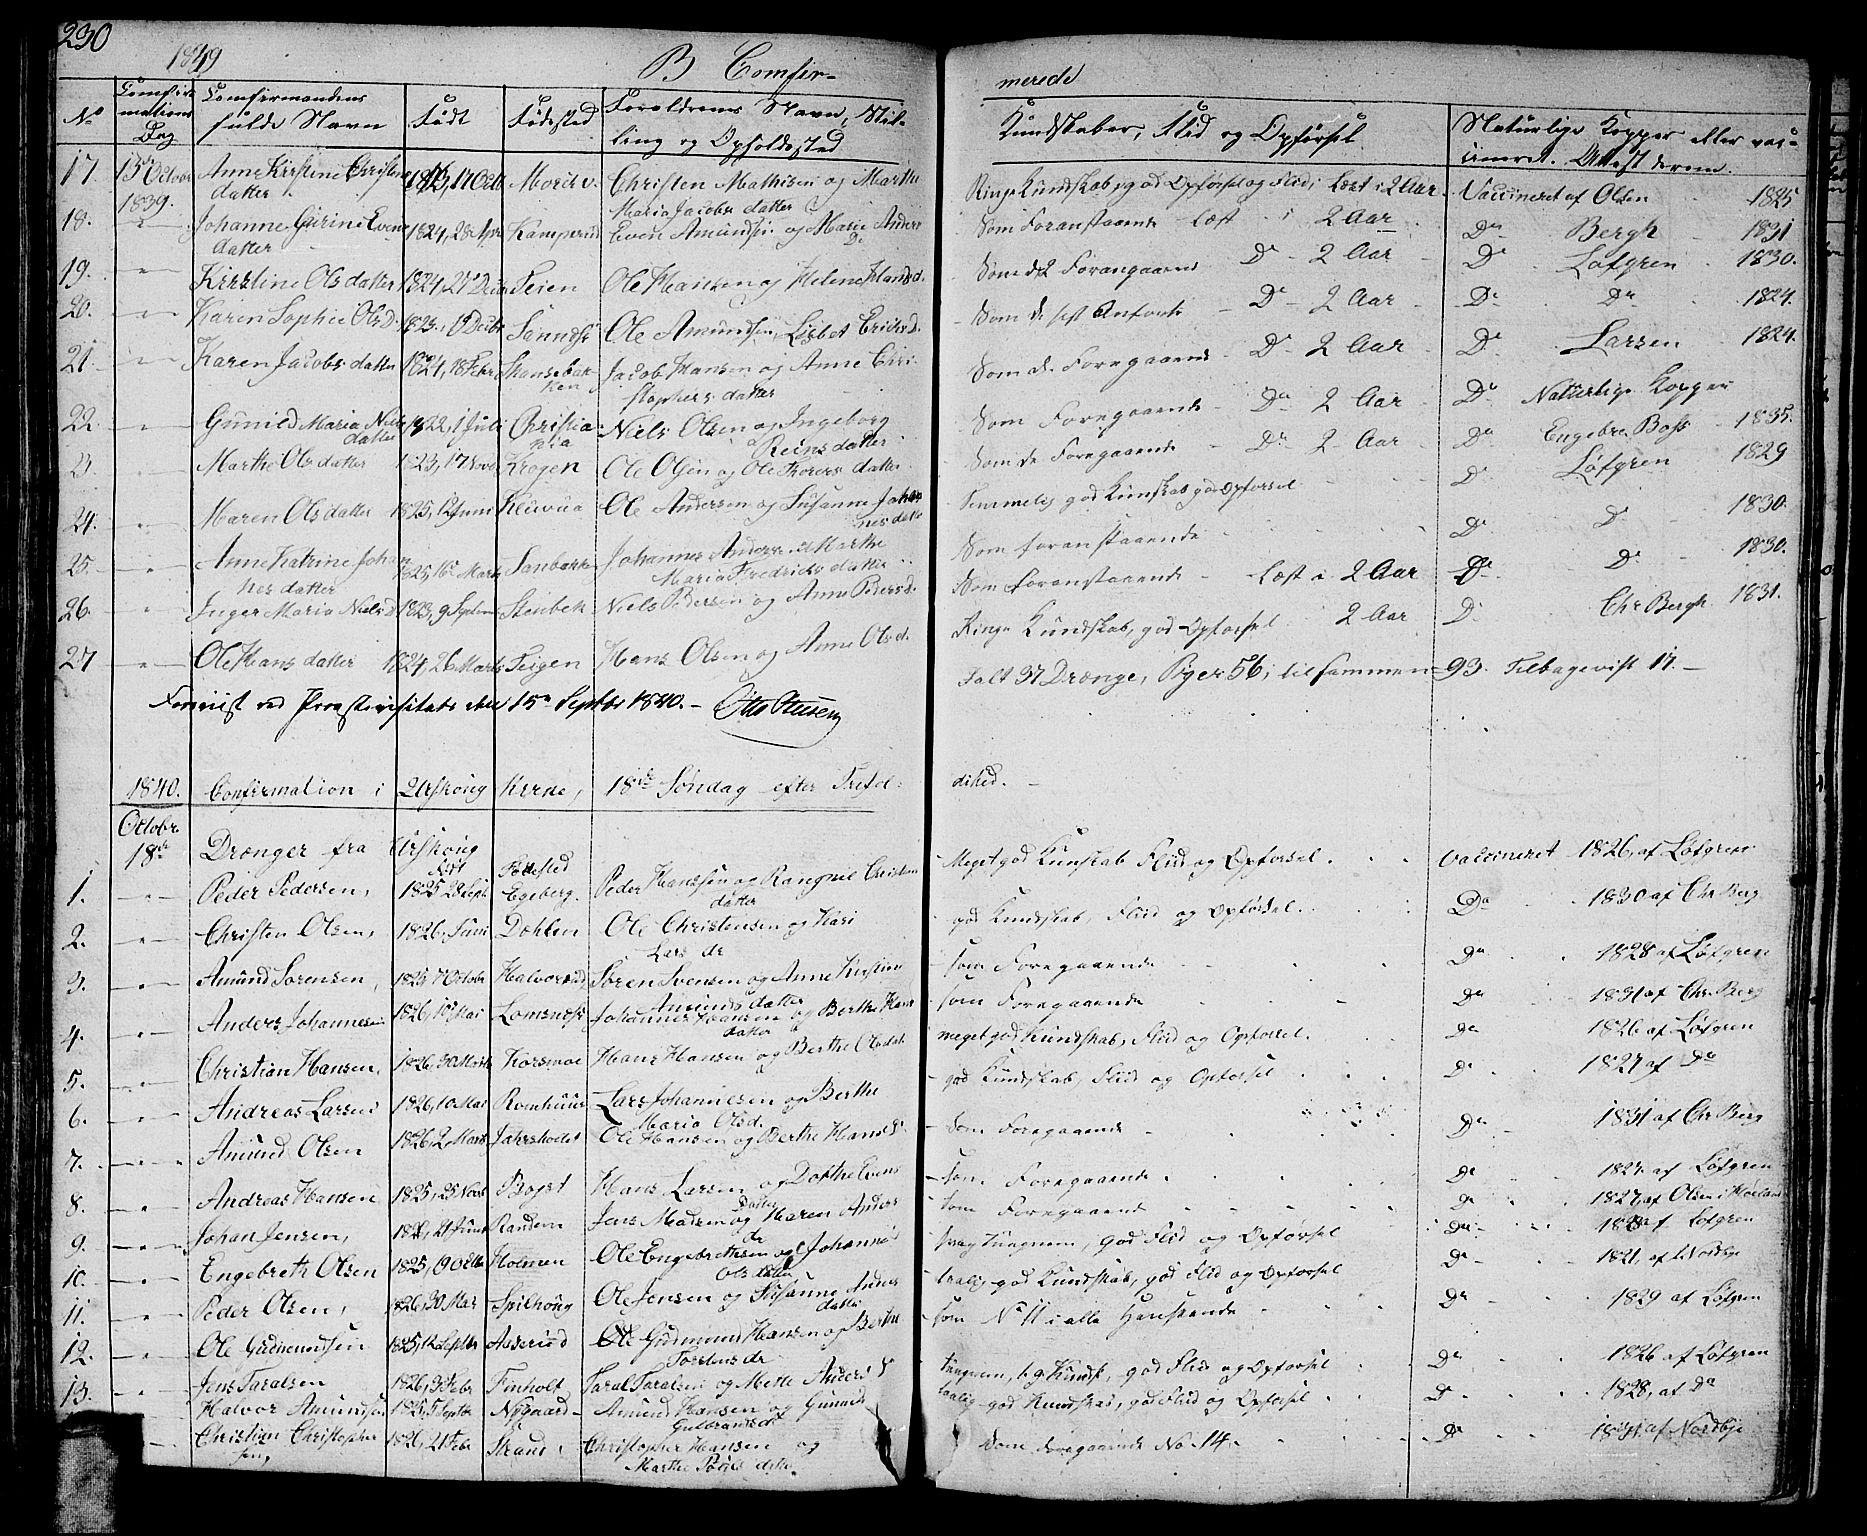 230
1839 B Comfir-
merede
No Comfir-
mations
Dag Comfirmandens
fulde Navn Født Fødested Foreldrenes Navn, Stil-
ling og Opholdssted Kundskaber, Flid og Opførsel Naturlige Kopper eller vac-
cineret. Attest derom.
17. 13de Octobr
1839. Anne Kirstine Christens
datter Christen Mathisen og Marthe
Maria Jacobs datter Ringe Kundskab, god Opførsel og Flid, Læst i 2 Aar Vaccineret af Olsen 1825
18. Johanne Gurine Evens
datter 1824, 28 Apr Kamperud Even Amundsen og Marie Anders
Dr Som Foranstaaende Læst i 2 Aar Do Bergh 1831
19. Kirstine Ols datter 1824, 27 Decbr Seien Ole Hansen og Helene Hansd. Som de 2 Foregaaende Do 2 Aar Do Løfgren 1830.
20. Karen Sophie Olsd. Ole Amundsen, Lisbet Ericksd. Do 2 Aar Do Do 1824.
21. Karen Jacobs datter 1824, 18 Febr Skansebak-
ken Jacob Hansen og Anne Chri
stophers datter Som de Foregaaende Do 2 Aar Do Larsen 1824.
22. Gunild Maria Niels
datter 1822, 1 Juli Christia
nia Niels Olsen og Ingeborg
Reins datter Som Foregaaende Do 2 Aar Do Naturlige Kopper
23. Marthe Ols datter 1823, 17 Novb Krogen Ole Olsen og Ole Thorers datter Som de Foregaaende Do 2 Aar Do Engebre. Boss 1835.
24. Maren Ols datter 1825, 12 Juni Ole Andersen og Susanne Johan
nes datter Temmelig god Kunskab god Opførsel Do Løfgren 1829
25. Anne Katrine Johan
nes datter 1825, 16 Marts Sanbakk Johannes Anders. Marthe
Maria Fredriks datter Som foranstaaende Do Do 1830.
26. Inger Maria Nielsd. 1823, 9 Septem Stenbek Niels Pedersen og Anne Pedersd. Som Foranstaaende Læst i 2 Aar Do Do 1830.
27 Ole Hans datter 1824, 26 Marts Teigen Hans Olsen og Anne Olsd. Ringe Kundskab, god Opførsel 2 Aar Do Chr Bergh 1831.
Ialt 37 Drænge, Piger 56, tilsammen 93. Tilbagevist 17.
Foreviist ved Proustevisitats den 15de Septbr 1840.
1840. Confirmation i Urskoug Kirke, 18de Søndag efter Trefol-
dihed.
Octobr.
18de Drænger fra Urskoug
Født Fødested
1. Peder Pedersen, 1825 28 Sept. Egeberg. Peder Hanssen og Rangnil Christens
datter Meget god Kunskab Fliid og Opførsel. vaccineret 1826, af Løfgren
2. Christen Olsen, 1826, Juni Dahlen Ole Christensen og Kari
Lars dr god Kundskab, Fliid og Opførsel. Do 1830 af Chr Berg
3. Amund Sørensen, 1825, 7 Octobr Halvorsrud, Søren Svensen og Anne Kirstine
Amunds datter som Foregaaende Do 1828 af Løfgren
4. Anders Johannesen 1826, 10 Mai Lomsnes Johannes Hansen og Berthe Hans
datter som Foregaaende Do 1831 af Chr. Berg
5. Christian Hansen, 1826, 30 Marts Korsmoe Hans Hansen og Berthe Olsdat. meget god Kundskab, Fliid og Opførsel. Do 1826 af Løfgren
6. Andreas Larsen 1826, 10 Mai Romhuus Lars Johannesen og Berthe
Maria Olsd. god Kundskab, Fliid og Opførsel Do 1827 af Do
7. Amund Olsen 1826, 2 Marts Ole Hansen og Berthe Hansd. Som Foregaaende Do 1831 af Chr Berg
8. Andreas Hansen 1825, 25 Novb Hans Larsen og Dorthe Evens
Datter som Foregaaende Do 1827. af Løfgren
9. Johan Jensen, 21 Juni Randem Jens Madsen og Maren Anders
dr som Foregaaende Do 1827, af Olsen i Høeland
10. Engebreth Olsen 1825, 19 Octb Holmen Ole Engebrethsen og Johanne
Ols datter svag Tungnem, god Flid og Opførsel Do Løfgren
11. Peder Olsen, 1826, 30 Mai Spilhoug Ole Jensen og Susanne Anders
datter tralig god Kundskab, god Flid og Opførsel Do 1821, af Nordbye
12. Ole Gudmundsen 1825, 12 Septbr Aaserud Ole Gudmund Hansen og Berthe
Torstens dr som No 11 i alle Henseende Do 1829 af Løfgren
13. Jens Taralsen 1826, 3 Febr Finholt Taral Taralsen og Mette Andersd tungnem, t. g. Kundsk, god Flid og Opførsel Do 1826 af Løfgren
Halvor Amundsen 1825, 5 Septbr Nygaard Amund Hansen og Gunild
Gulbrandsd taalig god Kundskab, god Flid og Opførsel Do 1828, af Do
Christian Christopher
sen, 1826, 21 Febr Strand Christopher Hansen og
Marthe Povels datter Som foregaaende No. 14. Do af Nordbye